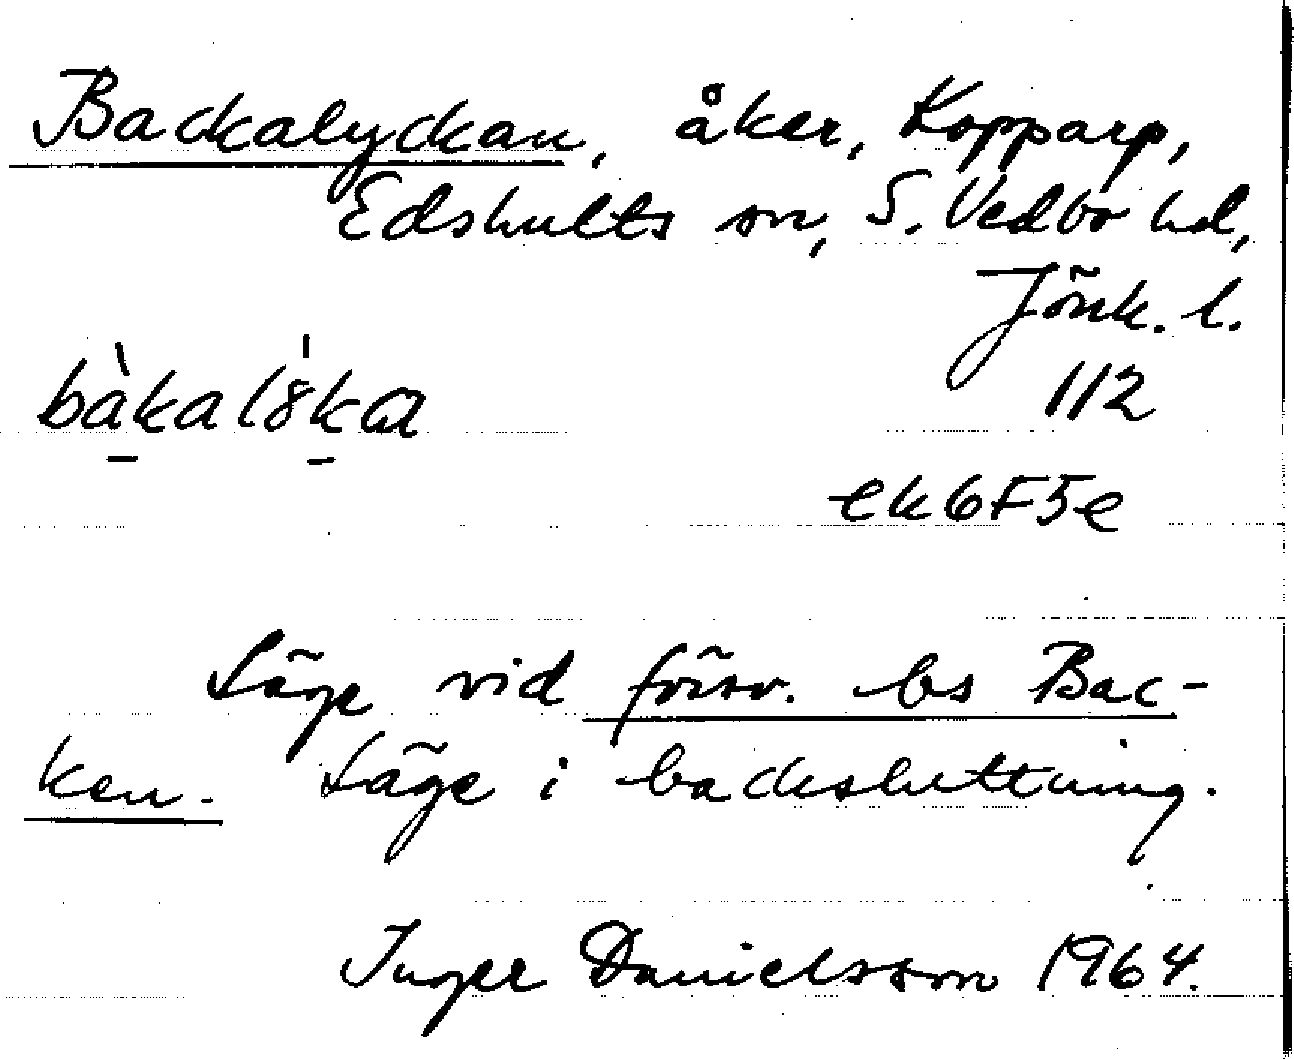 Backalyckan, åker, Kopparp,
Edshults sn, S. Vedbo hd,
Jönk. l.
112
ek6F5e
Läge vid försv. bs Bac-
ken. Läge i backsluttning.
Inger Danielsson 1964.